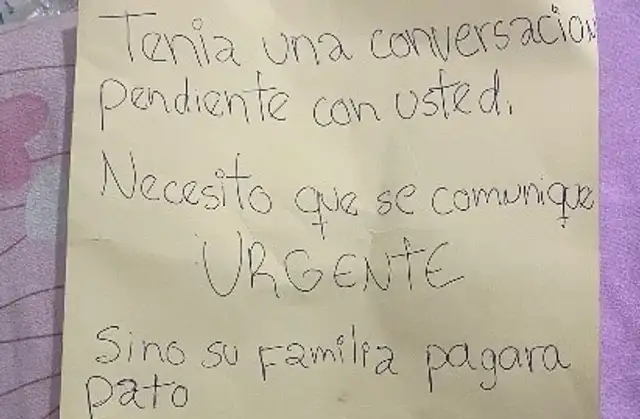 Tenia una conversacion
pendiente con usted.
Necesito que se comunique
URGENTE
Sino su familia pagara
pato